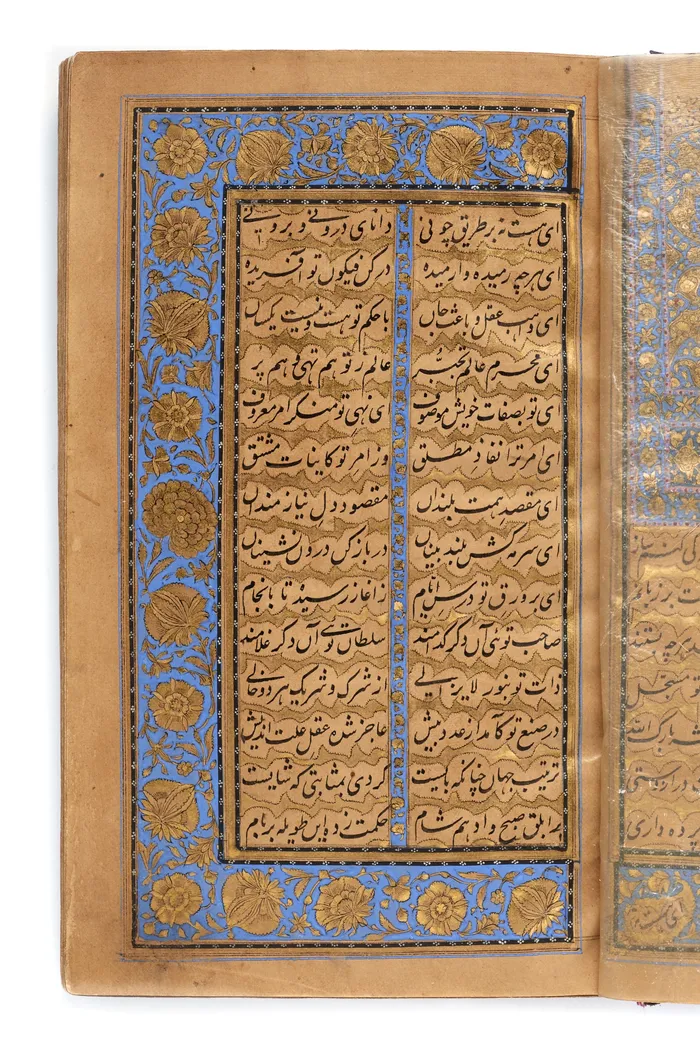 ای هست نه بر طریق چونی دانای درونی و برونی
ای هرچه رمیده وارمیده در کن فیکون تو آفریده
ای واهب عقل و باعث جان با حکم تو هست و نیست یکسان
ای محرم عالم تحیر عالم ز تو هم تهی و هم پر
ای تو بصفات خویش موصوف ای نهی تو منکر امر معروف
ای امر ترا نفاذ مطلق وز امر تو کاینات مشتق
ای مقصد همت بلندان مقصود دل نیازمندان
ای سرمه کش بلند بینان در باز کن درون نشینان
ای بر ورق تو درس ایام ز آغاز رسیده تا بانجام
صاحب توئی آن دگر کدامند سلطان توئی آن دگر غلامند
ذات تو بنور لایزالی از شرک و شریک هر دو خالی
در صنع تو کآمد از عدد بیش عاجز شده عقل علت اندیش
ترتیب جهان چنانکه بایست کردی بمثابتی که شایست
بر ابلق صبح و ادهم شام حکمت زده این طویله بر بام